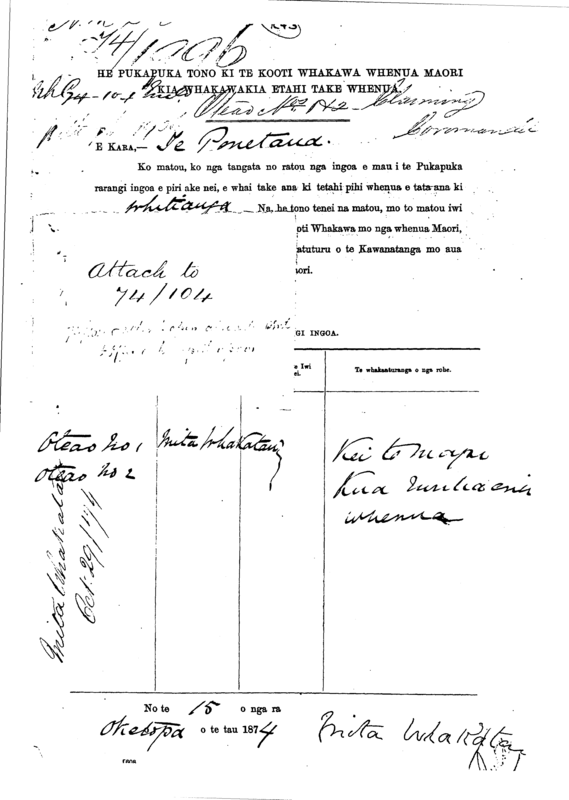 74/1296
HE PUKAPUKA TONO KI TE KOOTI WHAKAWA WHENUA MAORI
KIA WHAKAWAKIA ETAHI TAKE WHENUA.
74-10-1
Oteao Nos 1 & 2 - Claiming
Coromandel
E KARA,— Te Penetana.
Ko matou, ko nga tangata no ratou nga ingoa e mau i te Pukapuka
rarangi ingoa e piri ake nei, e whai take ana ki tetahi pihi whenua e tata ana ki
Whitianga — Na, he tono tenei na matou, mo to matou iwi
oti Whakawa mo nga whenua Maori,
atuturu o te Kawanatanga mo aua
ori.
Attach to
74/104
GI INGOA.
e Iwi
ei.
Te whakaaturanga o nga rohe.
Oteao No 1
Mita Whakatau
Oteao No 2
Kei te Mapi
Kua ruritia enei
whenua
Mita Whakatau
Oct: 29/74
No te 15 o nga ra
Oketopa o te tau 1874
Mita Whakatau